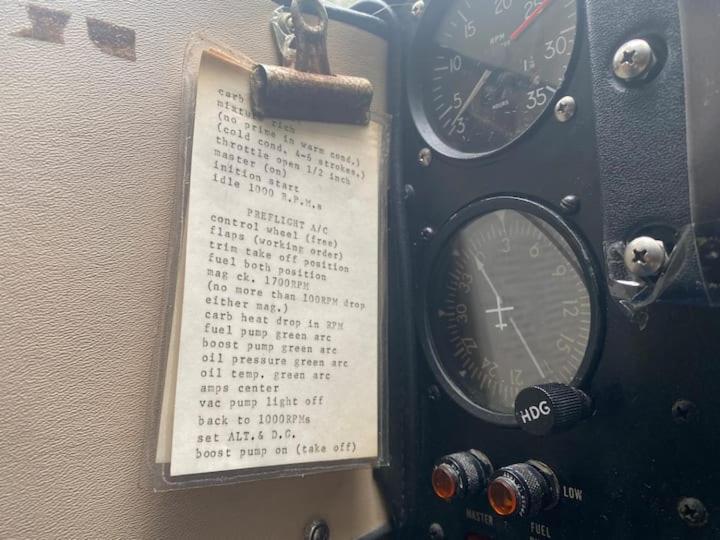 carb
mixture rich
(no prime in warm cond.)
(cold cond. 4-6 strokes.)
throttle open 1/2 inch
master (on)
inition start
idle 1000 R.P.M.s
PREFLIGHT A/C
control wheel (free)
flaps (working order)
trim take off position
fuel both position
mag ck. 1700RPM
(no more than 100RPM drop
either mag.)
carb heat drop in RPM
fuel pump green arc
boost pump green arc
oil pressure green arc
oil temp. green arc
amps center
vac pump light off
back to 1000RPMs
set ALT.& D.G.
boost pump on (take off)
20
25
15
RPM
30
10
5
HOURS
35
3
3
6
33
9
30
12
27
15
24
21
HDG
LOW
MASTER
FUEL